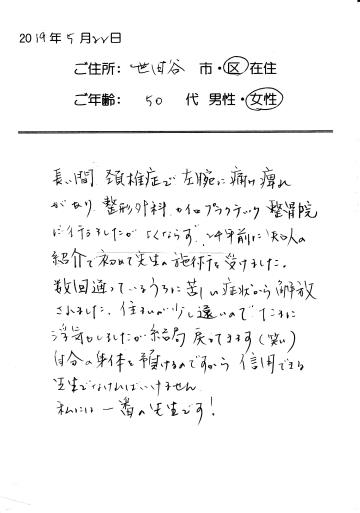 2019年5月22日
ご住所: 世田谷 市・区在住
ご年齢: 50 代 男性・女性
長い間 頚椎症で左腕に痛み痺れ
があり、整形外科、カイロプラクティック 整骨院
に行きましたがよくならず、2年半前に知人の
紹介で初めて先生の施術を受けました。
数回通っているうちに苦しい症状から解放
されました。住まいが少し遠いのでたまに
浮気もしましたが結局戻ってきます(笑い)
自分の身体を預けるのですから信用できる
先生でなければいけません
私には一番の先生です!